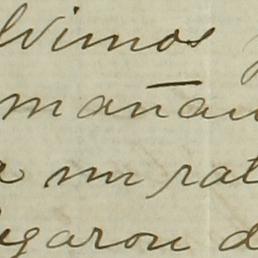 lvimos
mañan
a un rat
legaron d